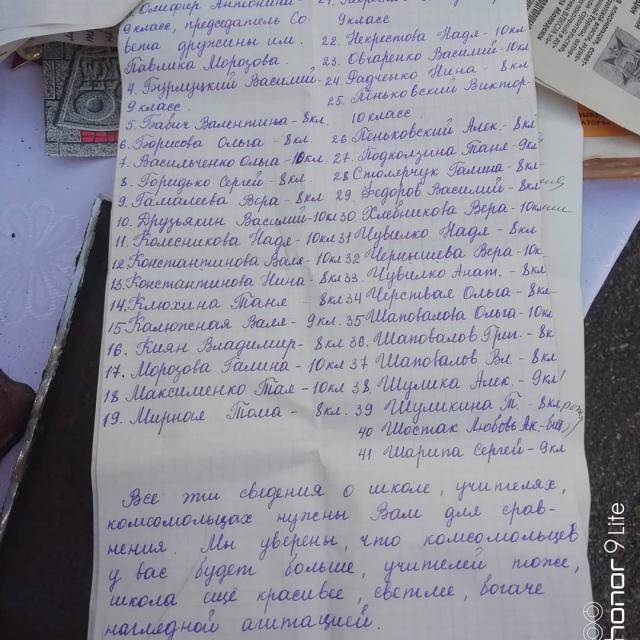 Олифир Антонина-
9 класс, председатель Со
вета дружины им.
Павлика Морозова.
4. Бурлуцкий Василий-
9 класс
5. Бабич Валентина- 8кл.
6. Борисова Ольга - 8кл.
7. Васильченко Ольга - 10кл.
8. Горидько Сергей - 8кл.
9. Гамалеева Вера - 8кл
10. Друзьякин Василий-10кл
11. Колесникова Надя -10кл
12. Константинова Валя- 10кл
13. Константинова Нина- 8кл
14. Клюхина Таня - 8кл
15 Калюжная Валя- 9кл.
16. Киян Владимир- 8кл
17. Морозова Галина - 10кл
18 Максименко Тая -10кл
19. Мирная Тома - 8кл.
9класс
22. Некрестова Надя- 10кл
23. Овчаренко Василий- 10кл
24. Радченко Нина - 8кл
25. Пеньковский Виктор-
10 класс.
26 Пеньковский Алек. - 8кл
27. Подколзина Таня- 9кл
28 Столярчук Галина- 8кл-
29. Федоров Василий- 8кл
30. Хлебникова Вера - 10кл
31 Чувилко Надя - 8кл
32 Чернышева Вера- 10к
33. Чувилко Анат. - 8кл
34 Черствая Ольга- 8кл
35 Шаповалова Ольга- 10кл
36. Шаповалов Григ. - 8к
37 Шаповалов Вл. - 8кл
38. Шулика Алек. - 9кл
39 Шуликина Т. - 8кл
40 Шостак Любовь Ак.-
41 Шарипа Сергей- 9кл
Все эти сведения о школе, учителях,
комсомольцах нужны Вам для срав-
нения. Мы уверены, что комсомольцев
у вас будет больше, учителей тоже,
школа ещё красивее, светлее, богаче
наглядной агитацией.
honor 9 Lite